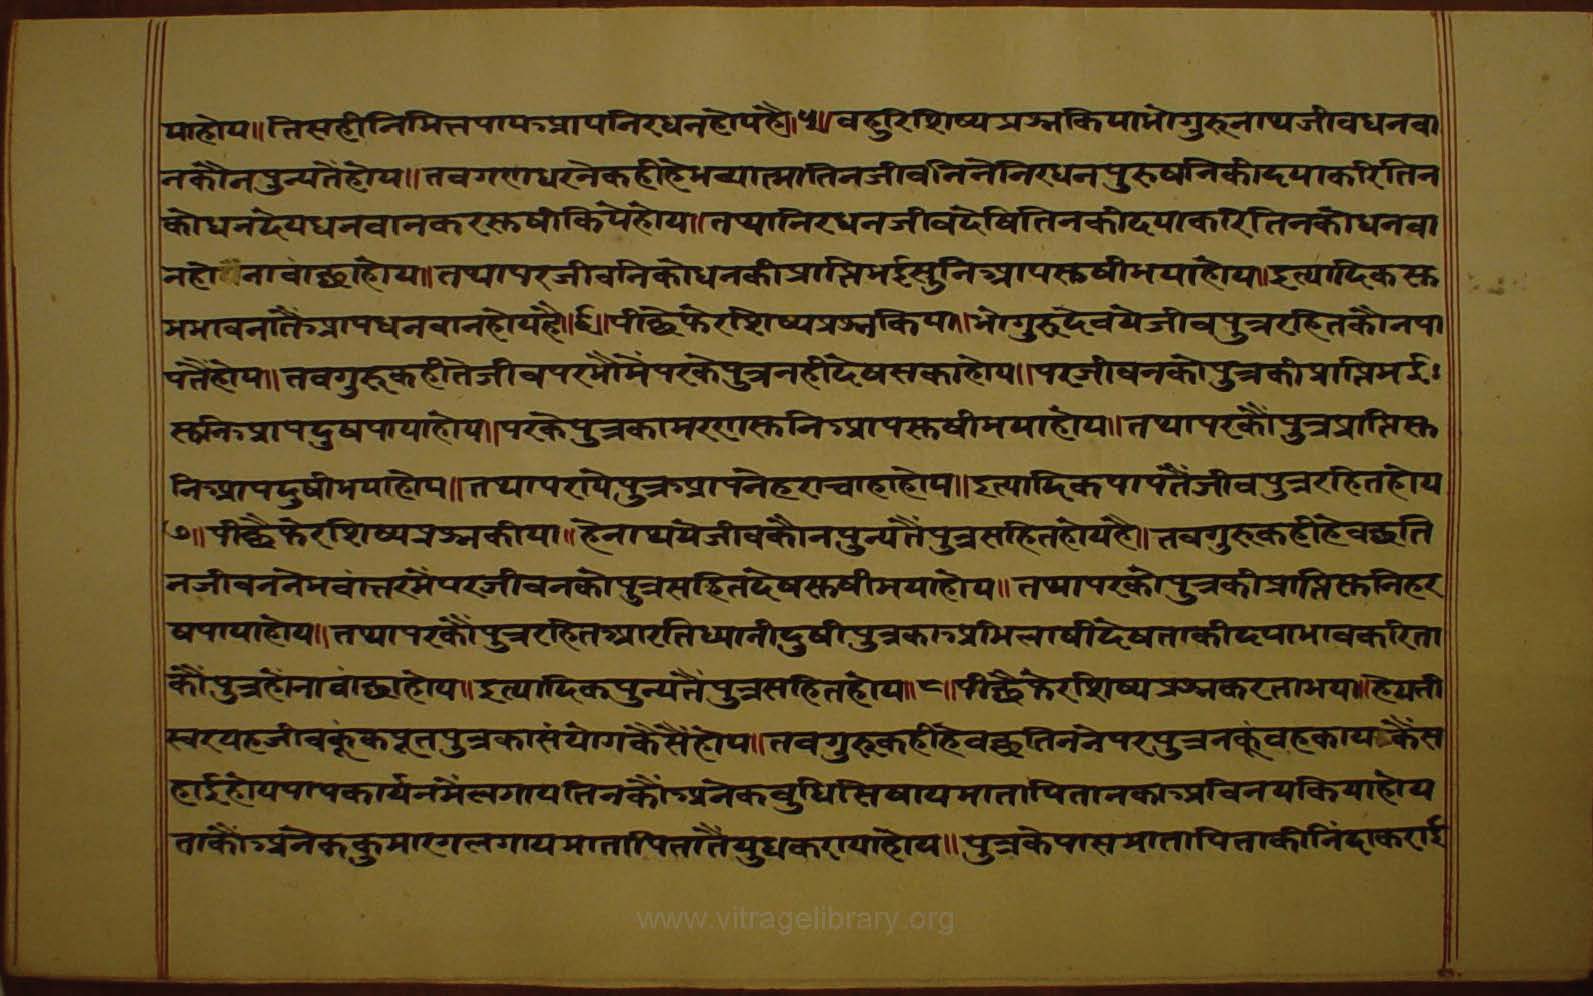 याहोय॥तिसहीनिमित्तपापऽप्रापनिरधनहोयहै॥५॥वहुरिशिष्यप्रश्नकियाभोगुरुनाथजीवधनवा
नकौनपुन्यतैंहोय॥तवगणधरनेकहीहेभव्यात्मातिनजीवनिनेनिरधनपुरुषनिकीदयाकरितिन
कोधनदेयधनवानकरस्तषीकियेहोय॥तथानिरधनजीवदेषितिनकीदयाकरितिनकोधनवा
नहोनावांछाहोय॥तथापरजीवनिकोधनकीप्राप्तिभईसुनिआपस्तषीभयाहोय॥इत्यादिकस्त
भभावनातैंऽप्रापधनवानहोयहै॥६॥पीछैफेरशिष्यप्रश्नकिया॥भोगुरुदेवयेजीवपुत्ररहितकौनपा
पतैंहोय॥तवगुरुकहीतेजीवपरभौमैंपरकेपुत्रनहींदेषसकाहोय॥परजीवनकोपुत्रकीप्राप्तिभई
स्तनिऽप्रापदुषपायाहोय॥परकेपुत्रकामरणस्तनिऽप्रापस्तषीभयाहोय॥तथापरकौंपुत्रप्राप्तिस्त
निऽप्रापदुषीभयाहोय॥तथापरायेपुत्रऽप्रापनेहराचाहाहोय॥इत्यादिकपापतैंजीवपुत्ररहितहोय
७॥पीछैफेरशिष्यप्रश्नकीया॥हेनाथयेजीवकौनपुन्यतैंपुत्रसहितहोयहै॥तवगुरुकहीहेवछति
नजीवननेभवांत्तरमैंपरजीवनकोपुत्रसहितदेषस्तषीभयाहोय॥तथापरकोपुत्रकीप्राप्तिस्तनिहर
षपायाहोय॥तथापरकौंपुत्ररहितआरतिध्यानीदुषीपुत्रकाऽप्रभिलाषीदेषताकीदयाभावकरिता
कौंपुत्रहोनावांछाहोय॥इत्यादिकपुन्यतैंपुत्रसहितहोय॥८॥पीछैफेरशिष्यप्रश्नकरताभया॥हेयती
स्वरयहजीवकूंकपूतपुत्रकासंयोगकैसैंहोय॥तवगुरुकहीहेवछतिननेपरपुत्रनकूंवहकायकैंस
हाईहोयपापकार्यनमैंलगायतिनकौंऽप्रनेकवुधिसिषायमातापितानकाऽप्रविनयकियाहोय
ताकौंऽप्रनेककुमारगलगायमातापितातैंयुधकरायाहोय॥पुत्रकेपासमातापिताकीनिंदाकराई
www.vitragelibrary.org